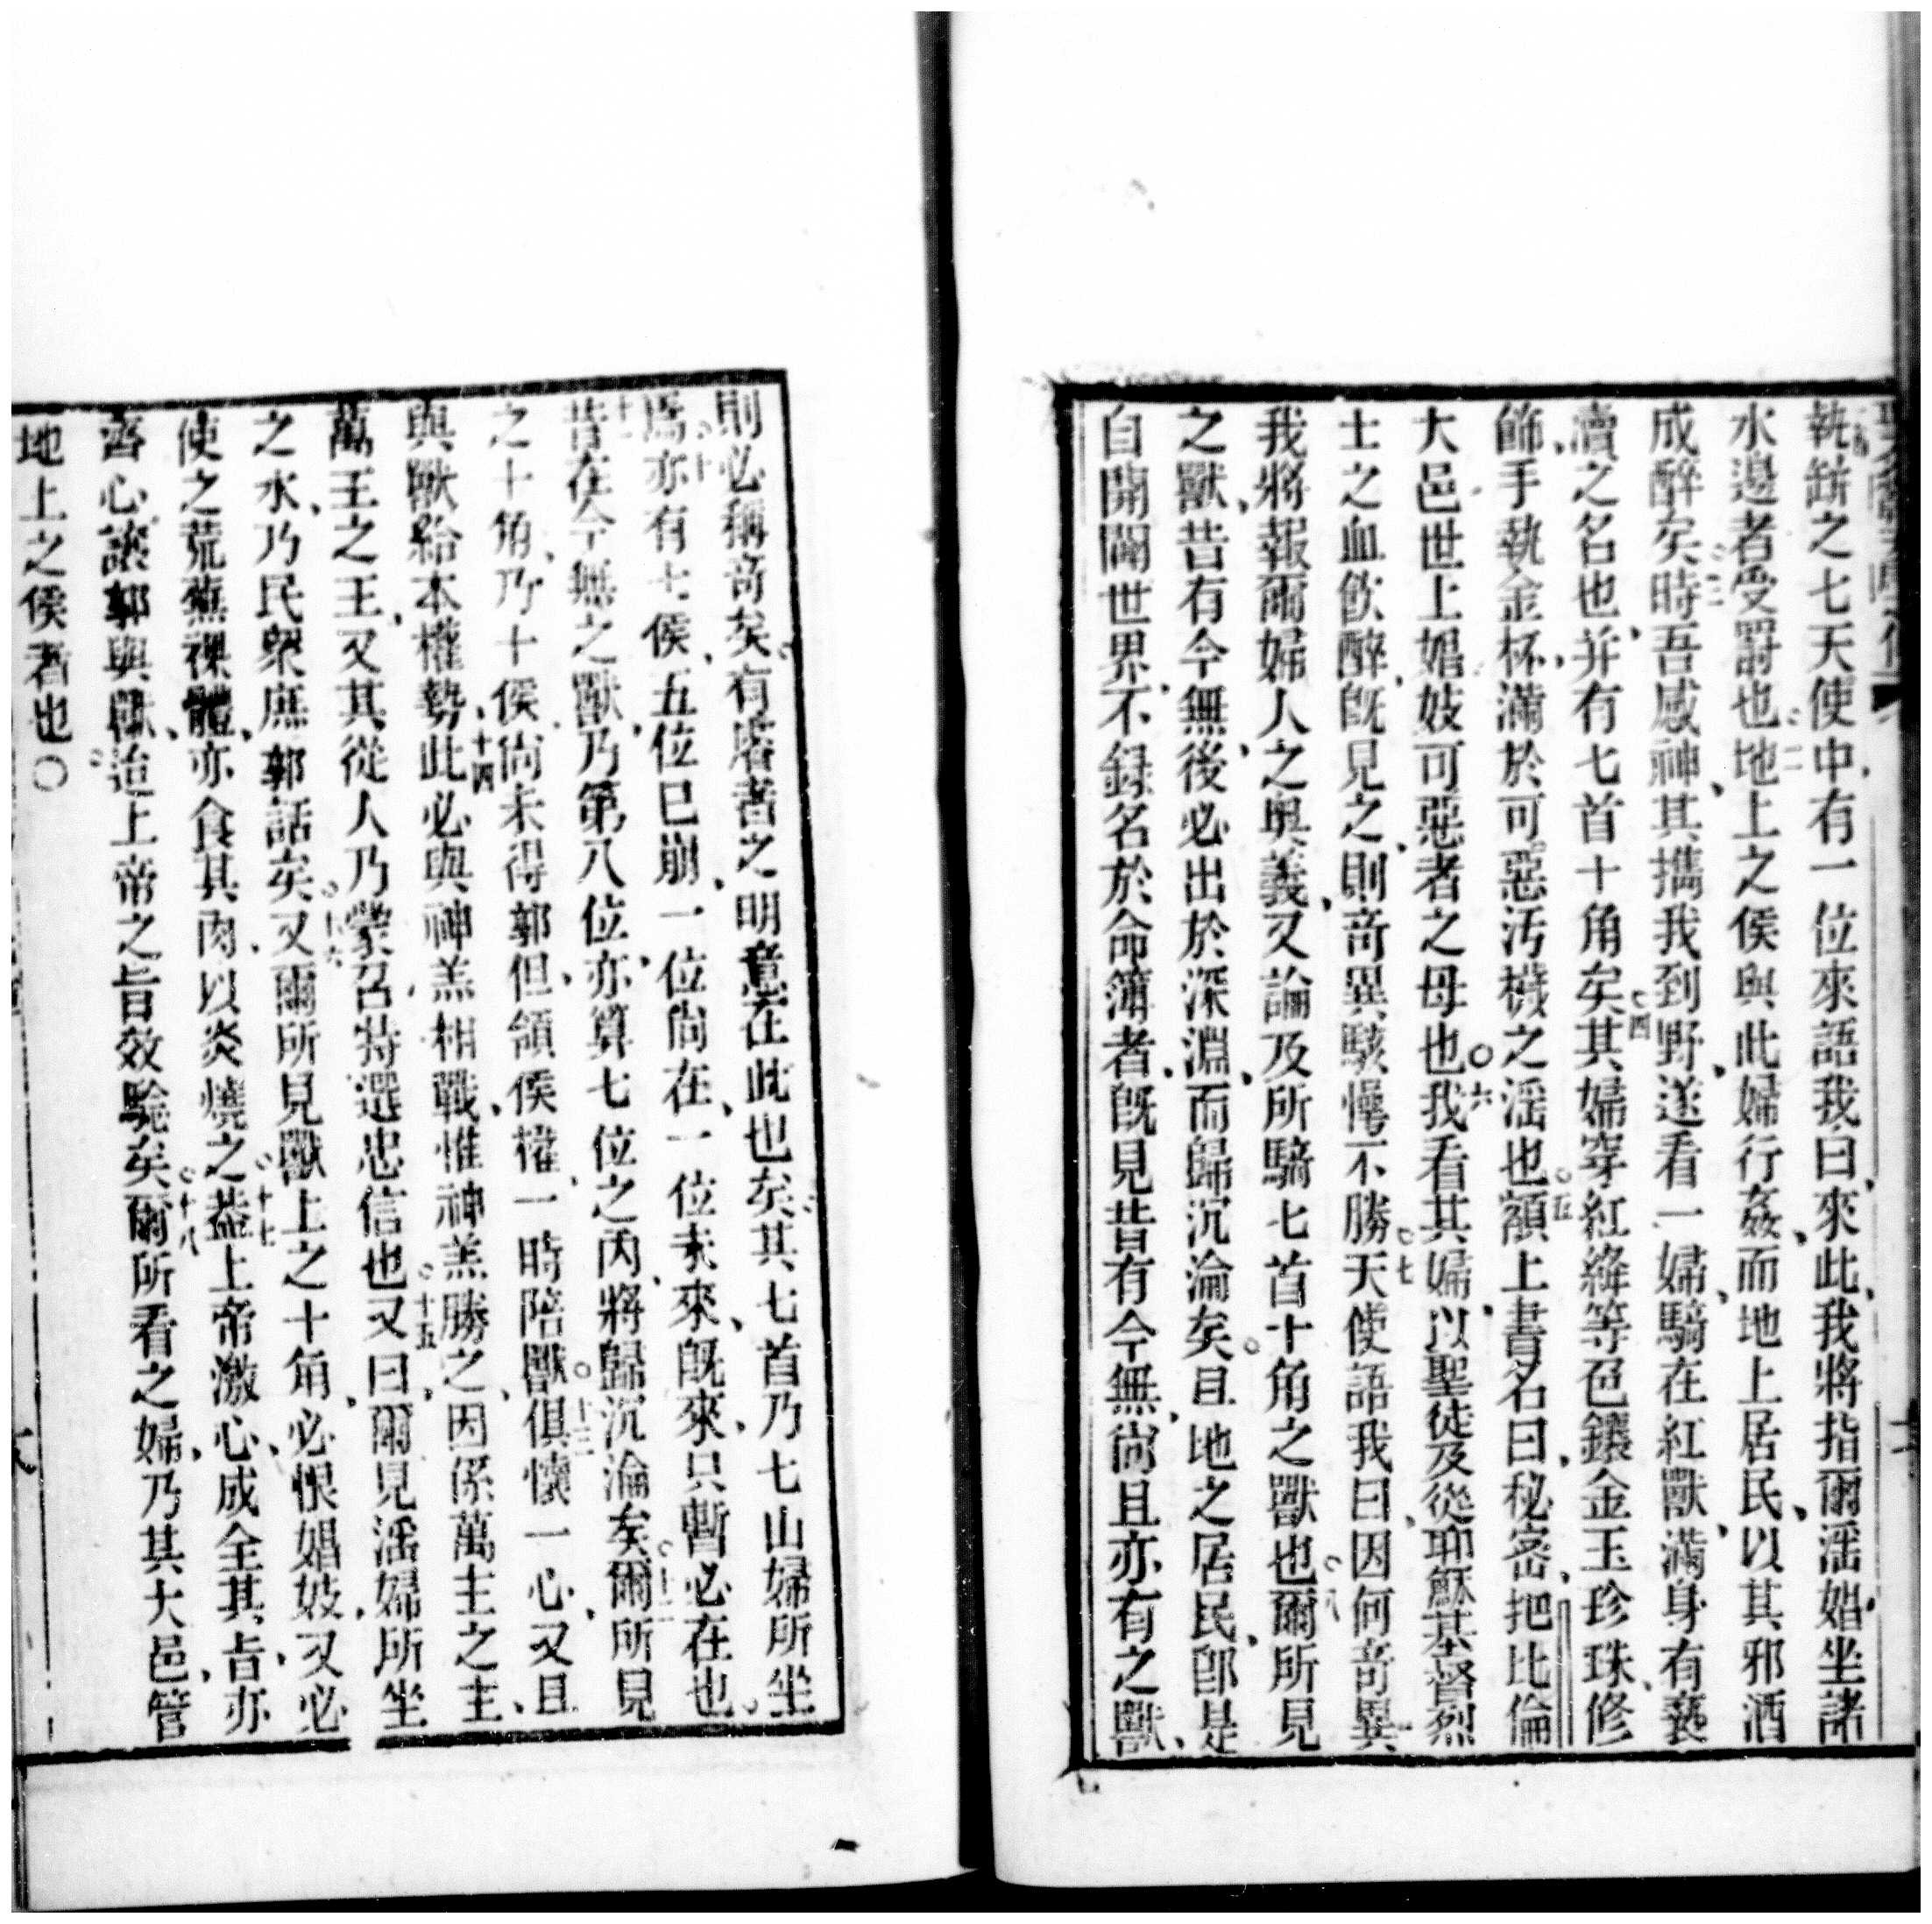 執缾之七天使中、有一位來語我曰、來此、我將指爾淫娼坐諸
水邊者受罸也。二地上之侯與此婦行姦、而地上居民、以其邪酒
成醉矣。三時吾感神、其攜我到野、遂看一婦、騎在紅獸、滿身有褻
瀆之名也、并有七首十角矣。四其婦穿紅絳等色鑲金玉珍珠、修
飾、手執金杯、滿於可惡汚穢之淫也。五額上書名曰、秘密、把比倫
大邑世上娼妓可惡者之母也。六我看其婦、以聖徒及從耶穌基督烈
士之血飲醉、旣見之、則竒異駭愕不勝。七天使語我曰、因何竒異
我將報爾婦人之奧義、又論及所騎七首十角之獸也。八爾所見
之獸、昔有今無、後必出於深淵、而歸沉淪矣。且地之居民、卽是
自開闢世界、不録名於命簿者、旣見昔有今無、尚且亦有之獸、
則必稱竒矣。有睿者之明意在此也矣。其七首乃七山婦所坐
焉。十亦有七侯、五位已崩、一位尚在、一位未來、旣來、只暫必在也。
十一昔在今無之獸、乃第八位、亦算七位之內、將歸沉淪矣。十二爾所見
之十角、乃十侯、尚未得郭、但頒侯權、一時陪獸。十三俱懷一心、又且
與獸給本權勢、十四此必與神羔相戰、惟神羔勝之、因係萬主之主、
萬王之王、又其從人乃蒙召特選忠信也。十五又曰、爾見淫婦所坐
之水、乃民衆庶郭話矣。十六又爾所見獸上之十角、必恨娼妓、又必
使之荒蕪裸體、亦食其肉、以炎燒之。十七葢上帝激心、成全其旨、亦
齊心讓郭與獸、迨上帝之旨效驗矣。十八爾所看之婦、乃其大邑、管
地上之侯者也〇